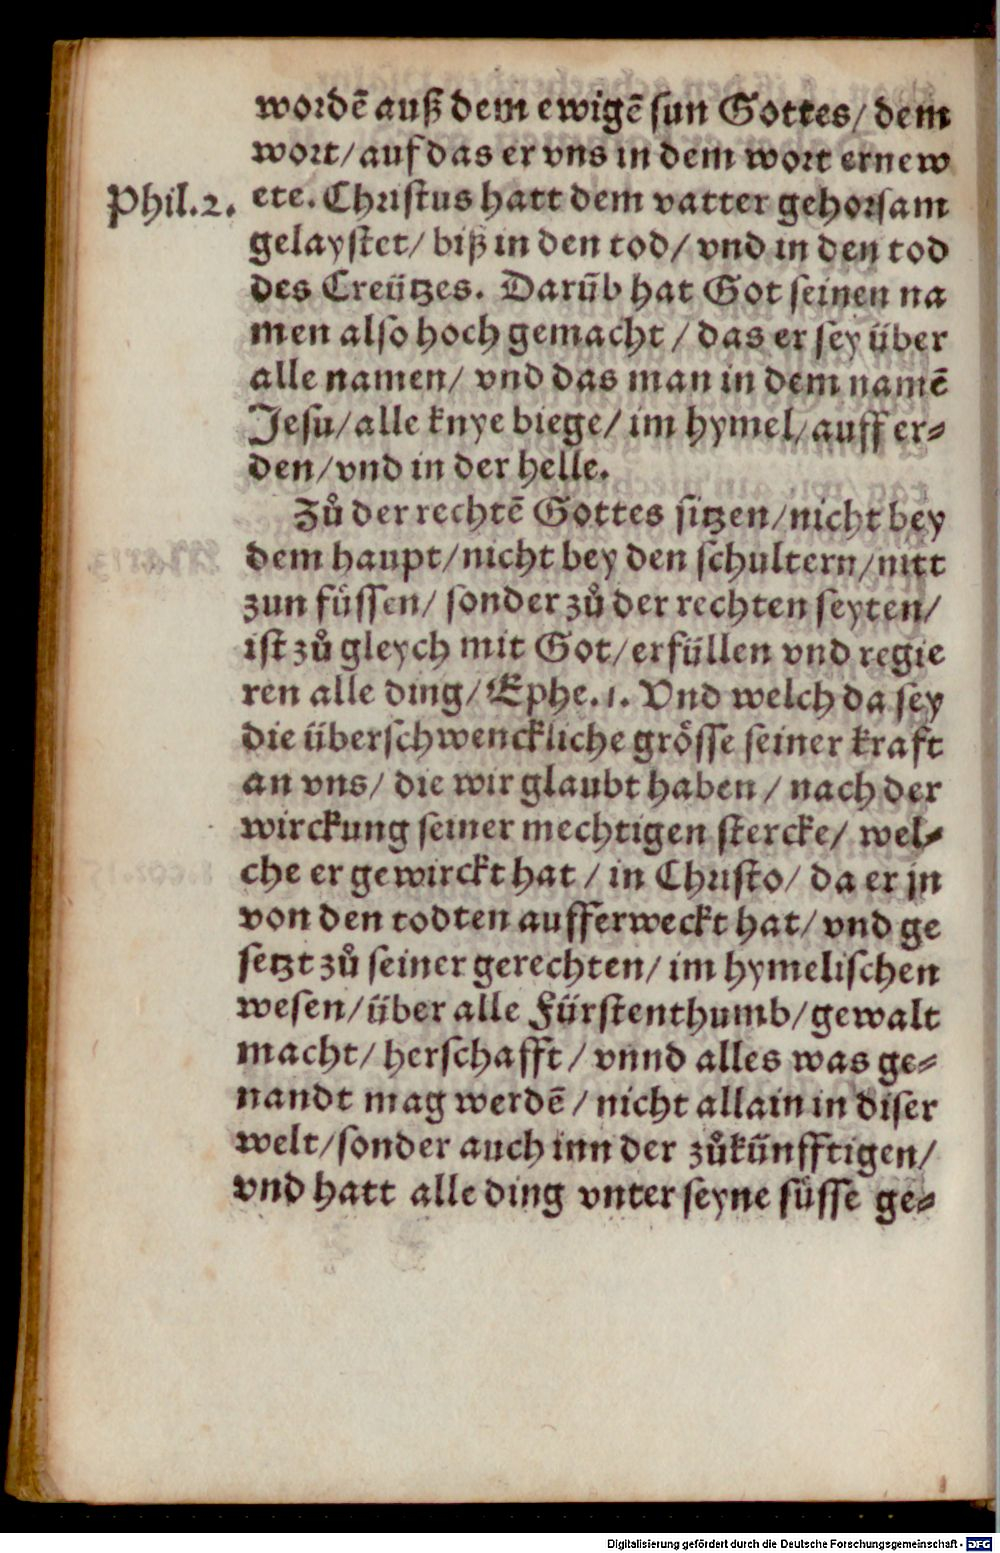 wordē auß dem ewigē sun Gottes/ dem
wort/ auf das er vns in dem wort ernew
Phil.2. ete. Christus hatt dem vatter gehorsam
gelaystet/ biß in den tod/ vnd in den tod
des Creützes. Darūb hat Got seinen na
men also hoch gemacht / das er sey über
alle namen/ vnd das man in dem namē
Jesu/ alle knye biege/ im hymel/ auff er⸗
den/ vnd in der helle.
Zů der rechtē Gottes sitzen/ nicht bey
dem haupt/ nicht bey den schultern/ nitt
zun füssen/ sonder zů der rechten seyten/
ist zů gleych mit Got/ erfüllen vnd regie
ren alle ding/ Ephe.1. Vnd welch da sey
die überschwenckliche grösse seiner kraft
an vns/ die wir glaubt haben / nach der
wirckung seiner mechtigen stercke/ wel⸗
che er gewirckt hat / in Christo/ da er jn
von den todten aufferweckt hat/ vnd ge
setzt zů seiner gerechten/ im hymelischen
wesen/ über alle Fürstenthumb/ gewalt
macht/ herschafft / vnnd alles was ge⸗
nandt mag werdē / nicht allain in diser
welt/ sonder auch inn der zůkünfftigen/
vnd hatt alle ding vnter seyne füsse ge⸗
Digitalisierung gefördert durch die Deutsche Forschungsgemeinschaft - DFG